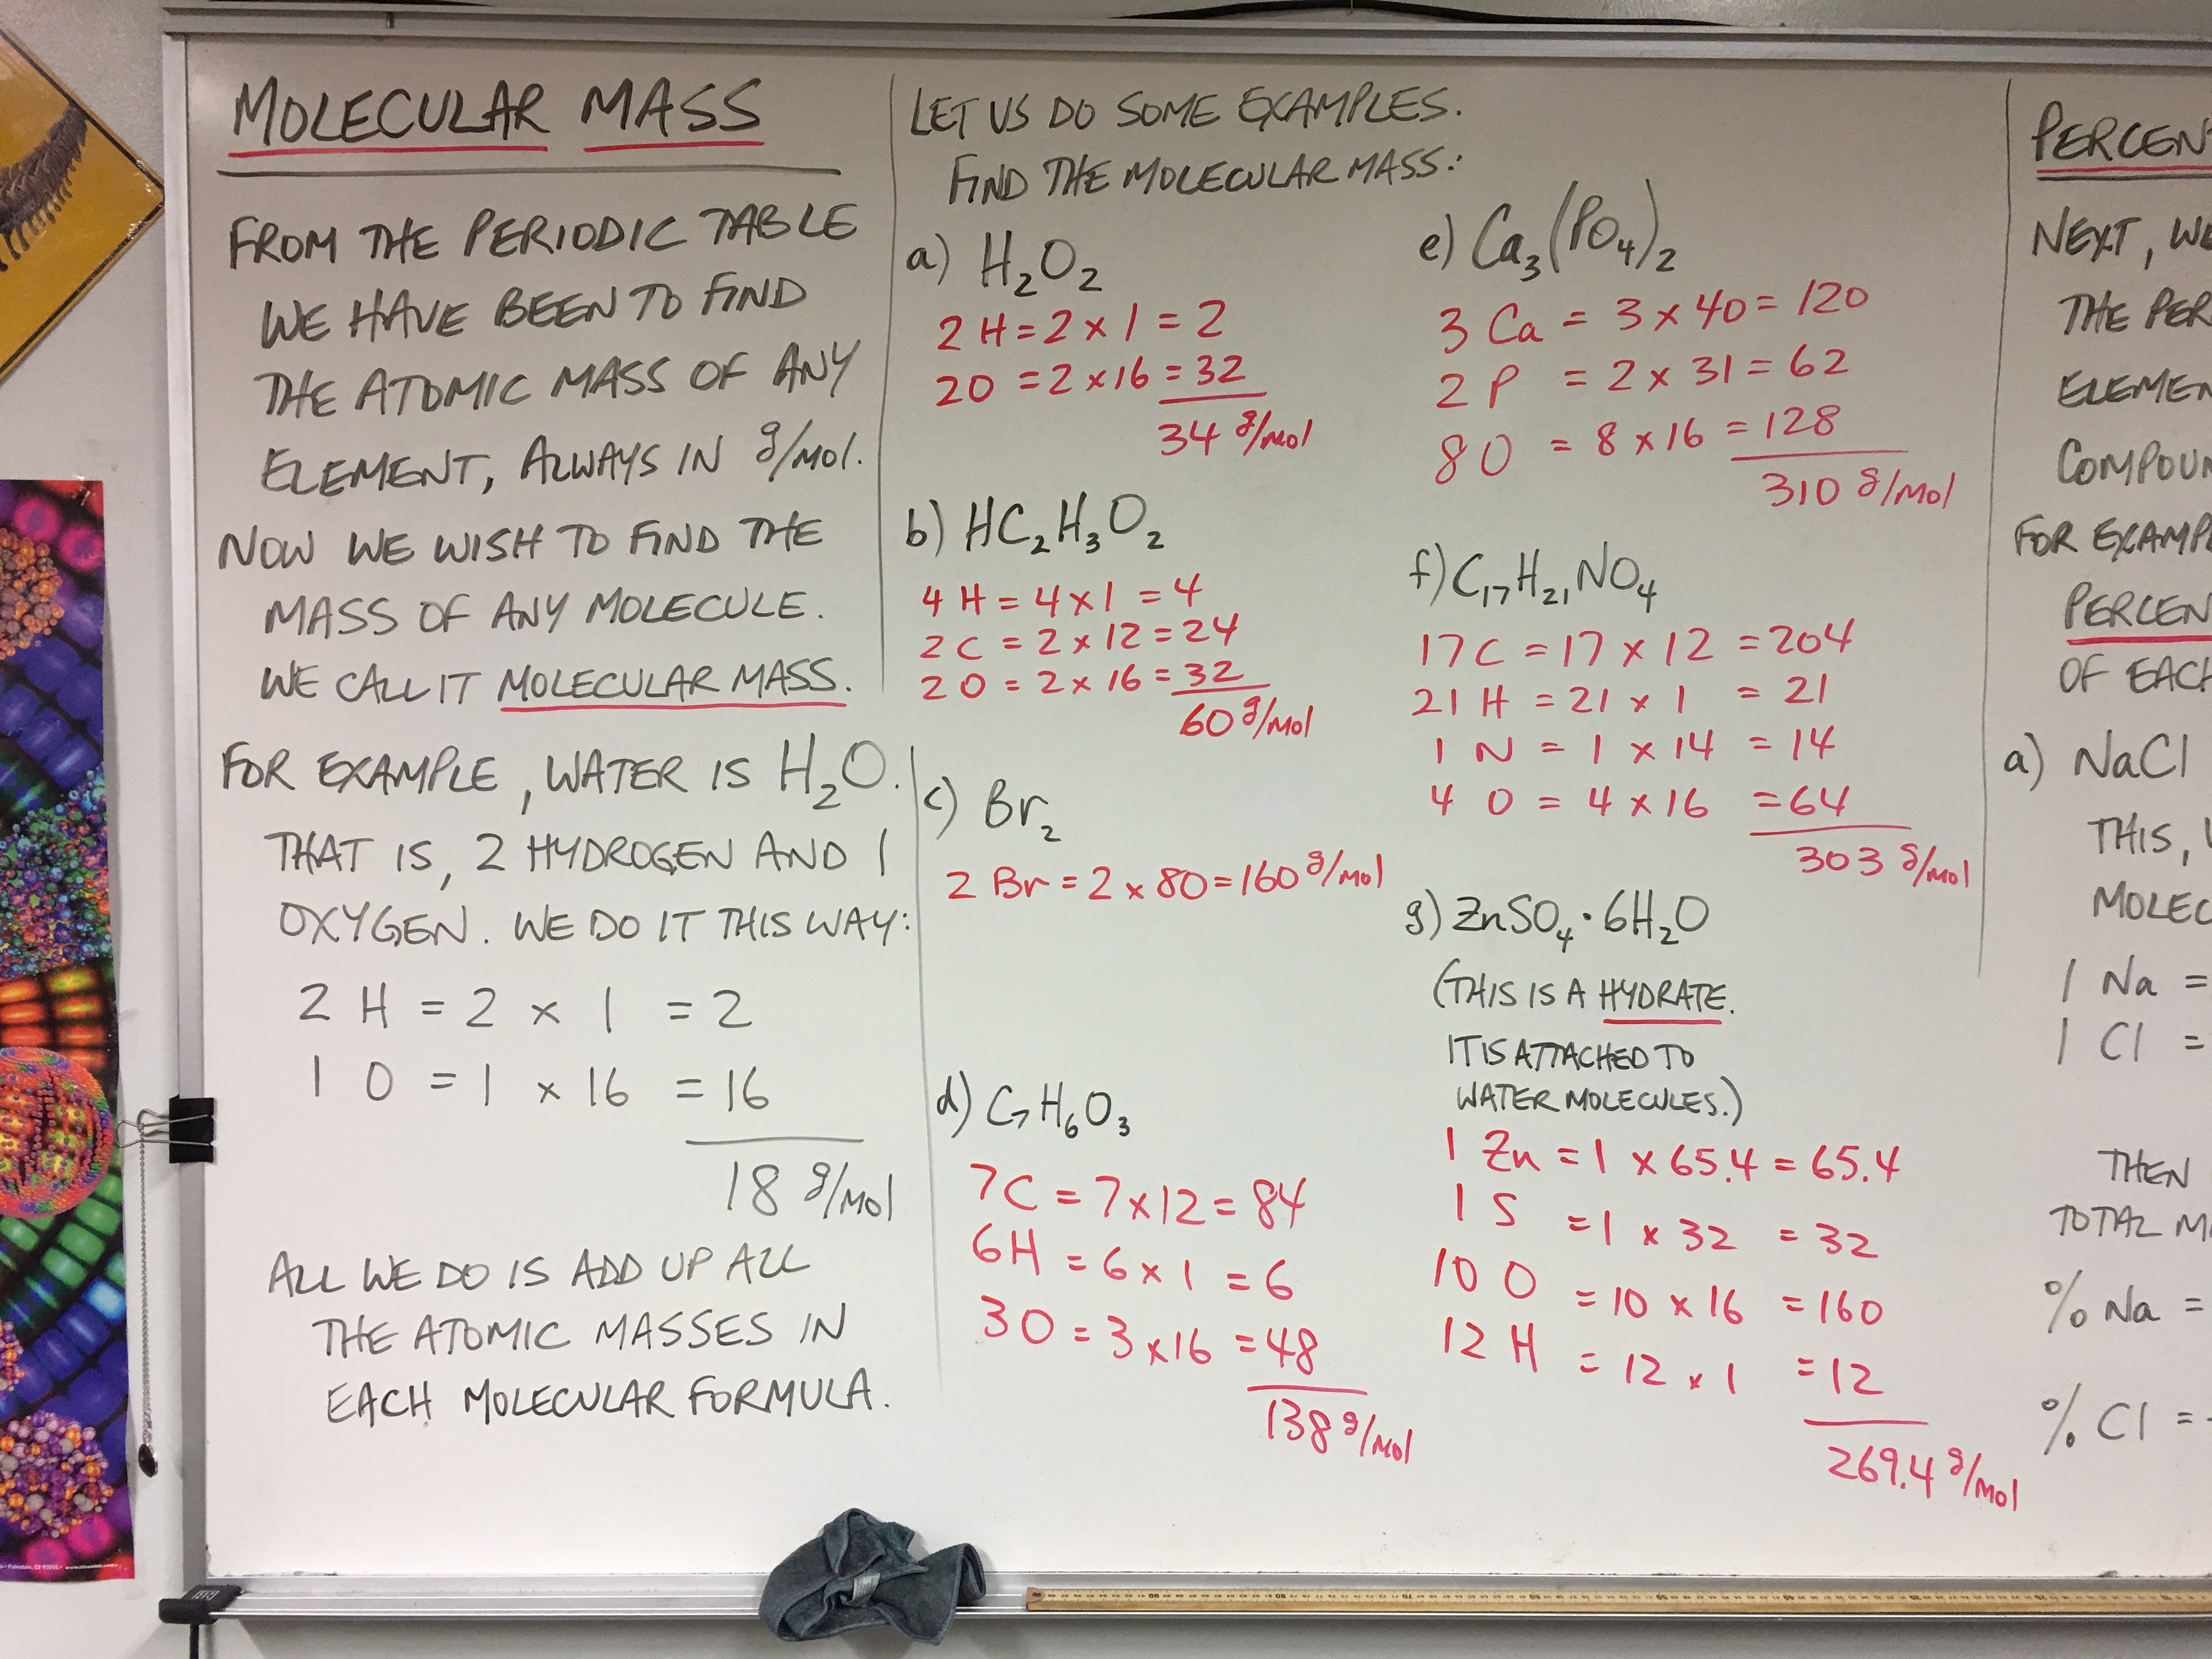 MOLECULAR MASS
FROM THE PERIODIC TABLE
WE HAVE BEEN TO FIND
THE ATOMIC MASS OF ANY
ELEMENT, ALWAYS IN g/mol.
NOW WE WISH TO FIND THE
MASS OF ANY MOLECULE.
WE CALL IT MOLECULAR MASS.
FOR EXAMPLE, WATER IS H₂O.
THAT IS, 2 HYDROGEN AND 1
OXYGEN. WE DO IT THIS WAY:
2 H = 2 x 1 = 2
1 O = 1 x 16 = 16
18 g/mol
ALL WE DO IS ADD UP ALL
THE ATOMIC MASSES IN
EACH MOLECULAR FORMULA.
LET US DO SOME EXAMPLES.
FIND THE MOLECULAR MASS:
a) H₂O₂
2 H = 2 x 1 = 2
2O = 2 x 16 = 32
34 g/mol
b) HC₂H₃O₂
4 H = 4 x 1 = 4
2 C = 2 x 12 = 24
2 O = 2 x 16 = 32
60 g/mol
c) Br₂
2 Br = 2 x 80 = 160 g/mol
d) C₇H₆O₃
7C = 7 x 12 = 84
6H = 6 x 1 = 6
3O = 3 x 16 = 48
138 g/mol
e) Ca₃(PO₄)₂
3 Ca = 3 x 40 = 120
2 P = 2 x 31 = 62
8 O = 8 x 16 = 128
310 g/mol
f) C₁₇H₂₁NO₄
17C = 17 x 12 = 204
21 H = 21 x 1 = 21
1 N = 1 x 14 = 14
4 O = 4 x 16 = 64
303 g/mol
g) ZnSO₄·6H₂O
(THIS IS A HYDRATE.
IT IS ATTACHED TO
WATER MOLECULES.)
1 Zn = 1 x 65.4 = 65.4
1 S = 1 x 32 = 32
10 O = 10 x 16 = 160
12 H = 12 x 1 = 12
269.4 g/mol
PERCEN
NEXT, WE
THE PER
ELEMEN
COMPOUN
FOR EXAMP
PERCEN
OF EACH
a) NaCl
THIS,
MOLEC
1 Na =
1 Cl =
THEN
TOTAL M
% Na =
% Cl =